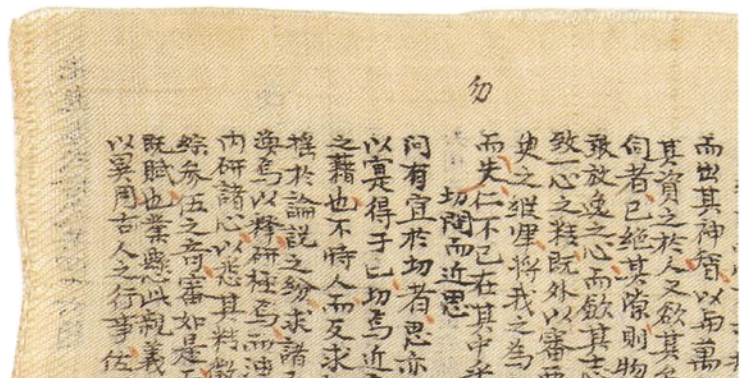 而出其神智以雨萬
其資之於人又欲其
伺者已絕其隙則物
敢放逸之心而歛其志
致一心之精既外以審
史之將我之為
勿
而失仁不已在其中乎
切問而近思
問有宜於切者思亦
以寔得于己切焉近
之藉也不恃人而反求
搖於論說之紛求諸
渙焉以釋研極焉而
內研諸心以悉其精微
綜參伍之奇審如是
既賦也業懸此親義
以異用古人之行事佐